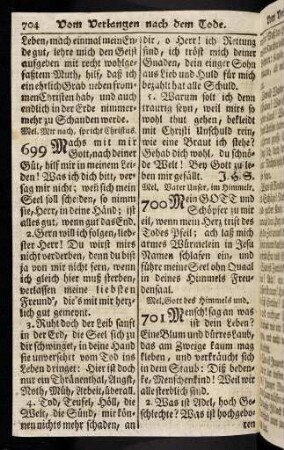 704 Vom Verlangen nach dem Tode.
Leben, mach einmal mein En-
de gut, lehre mich den Geist
aufgeben mit recht wohlge-
faßtem Muth, hilf, daß ich
ein ehrlich Grab neben from-
men Christen hab, und auch
endlich in der Erde nimmer-
mehr zu Schanden werde.
Mel. Mir nach, spricht Christus.
699 Machs mit mir
Gott, nach deiner
Güt, hilf mir in meinem Lei-
den! Was ich dich bitt, ver-
sag mir nicht; weñ sich mein
Seel soll scheiden, so nimm
sie, Herr, in deine Händ; ist
alles gut, wenn gut das End.
2. Gern will ich folgen, lieb-
ster Herr! Du wirst mirs
nicht verderben, denn du bist
ja von mir nicht fern, wenn
ich gleich hier muß sterben,
verlassen meine liebsten
Freund', die's mit mir herz-
lich gut gemeynt.
3. Ruht doch der Leib sanft
in der Erd, die Seel sich zu
dir schwinget, in deine Hand
sie unversehrt vom Tod ins
Leben dringet: Hier ist doch
nur ein Thränenthal, Angst,
Noth, Müh, Arbeit, überall.
4. Tod, Teufel, Höll, die
Welt, die Sünd, mir kön-
nen nichts mehr schaden, an
dir, o Herr! ich Rettung
find, ich tröst mich deiner
Gnaden, dein einger Sohn
aus Lieb und Huld für mich
bezahlt hat alle Schuld.
5. Warum solt ich denn
traurig seyn, weil mirs so
wohl thut gehen, bekleidt
mit Christi Unschuld rein,
wie eine Braut ich stehe?
Gehab dich wohl, du schnö-
de Welt! Bey Gott zu le-
ben mir gefällt. J. H. S.
Mel. Vater Unser, im Himmelr.
700 Mein GOTT und
Schöpfer steh mir
bey, wenn mein Herz trift des
Todes Pfeil; ach laß mich
armes Würmelein in Jesu
Namen schlafen ein, und
führe meine Seel ohn Quaal
in deines Himmels Freu-
densaal.
Mel. Gott des Himmels und,
701 Mensch! sag an was
ist dein Leben?
Eine Blum und dürres Laub,
das am Zweige kaum mag
kleben, und verkräucht sich
in dem Staub: Diß beden-
ke, Menschenkind! Weil wir
alle sterblich sind.
2. Was ist Adel, hoch Ge-
schlechte? Was ist hochgebo-
ren